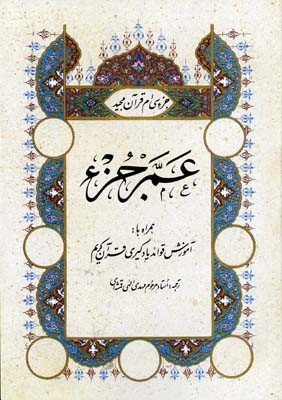 جزء سی ام قرآن مجید
عمّ جزء
همراه با:
آموزش قواعد یادگیری قرآن کریم
ترجمه: استاد مرحوم مهدی الهی قمشه‌ای